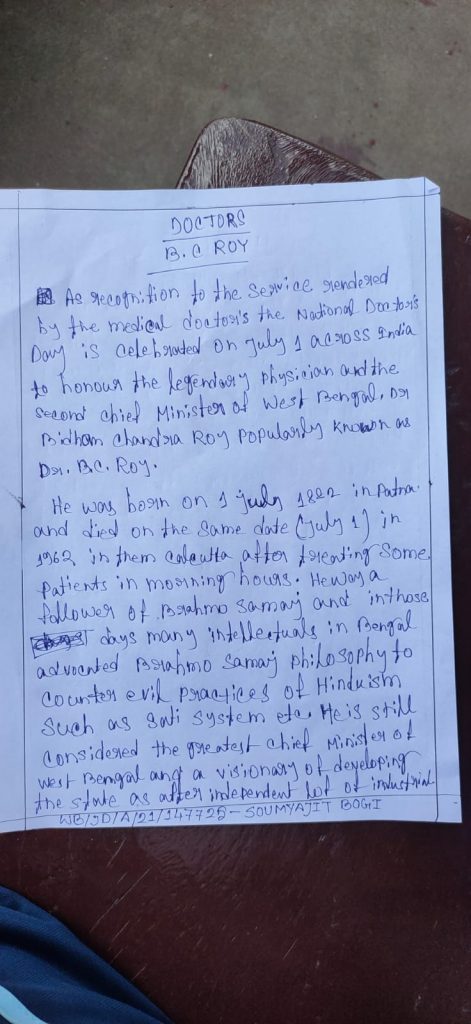 DOCTORS
B. C ROY
As recognition to the service rendered
by the medical doctors the National Doctor's
Day is celebrated on July 1 across India
to honour the legendary physician and the
second chief Minister of West Bengal, Dr
Bidhan Chandra Roy popularly known as
Dr. B.C. Roy.
He was born on 1 july 1882 in Patna
and died on the same date (July 1) in
1962 in them calcutta after treating some
patients in morning hours. He was a
follower of Brahmo Samaj and in those
days many intellectuals in Bengal
advocated Brahmo Samaj philosophy to
counter evil practices of Hinduism
such as Sati system etc. He is still
considered the greatest chief Minister of
West Bengal and a visionary of developing
the state as after independent lot of industrial
WB/SD/A/21/147725-SOUMYAJIT BOGI